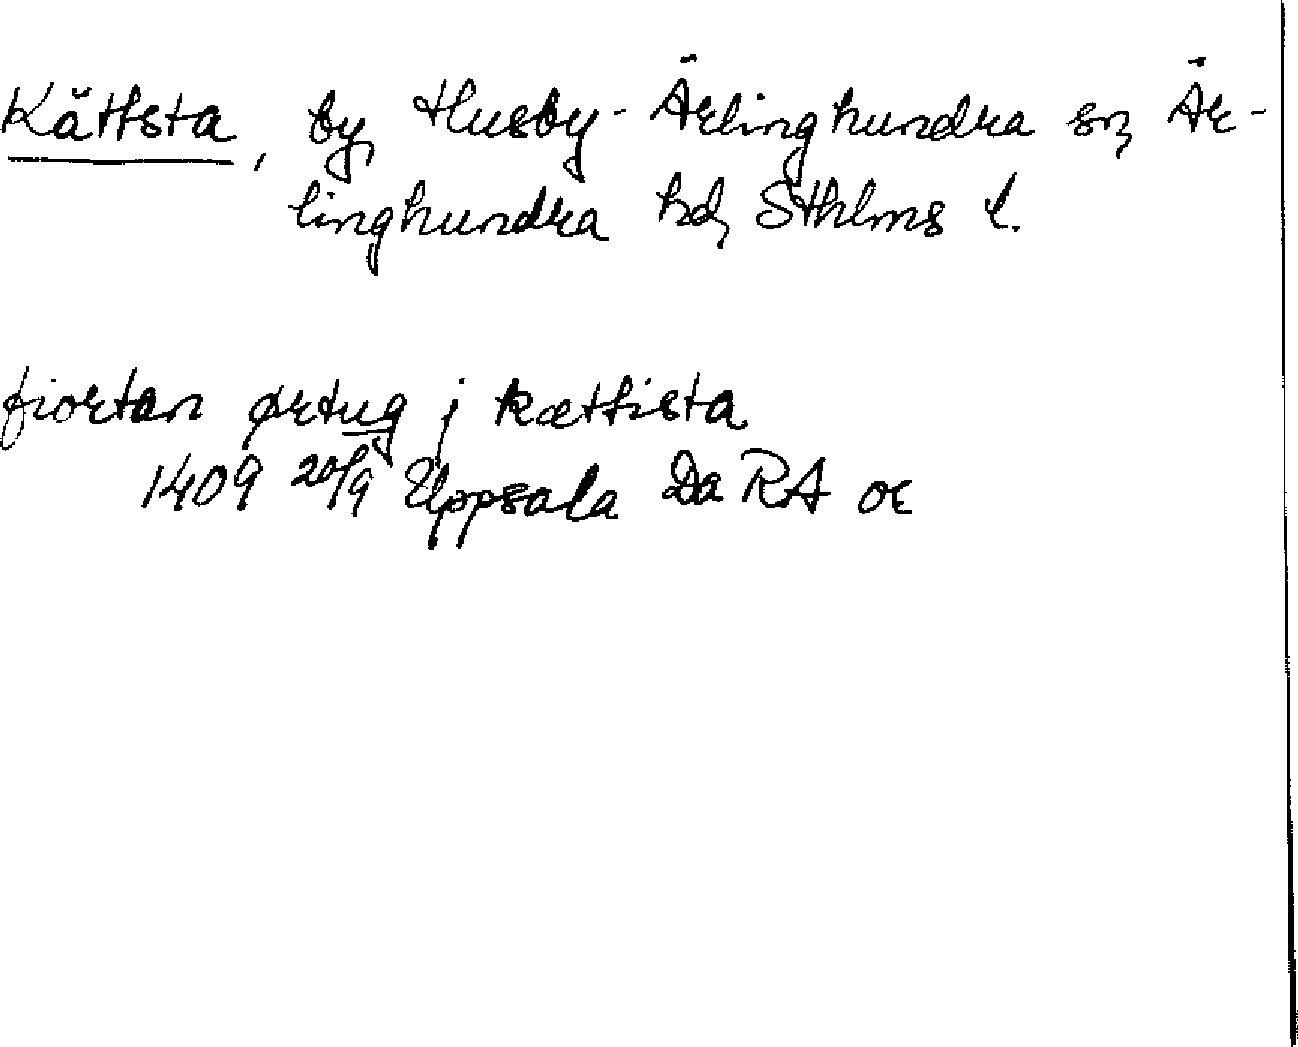 Kättsta, by, Husby-Ärlinghundra sn, Är-
linghundra hd, Sthlms l.
fiortan ørtug j kættista
1409 20/9 Uppsala Da RA or